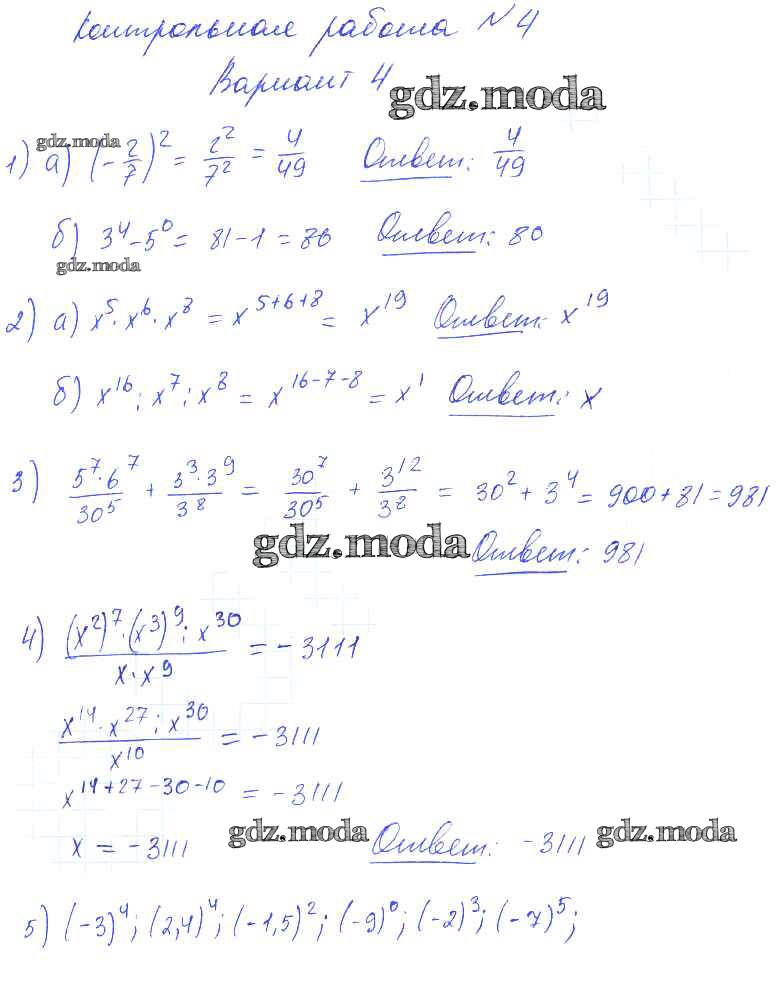 Контрольная работа №4
Вариант 4
gdz.moda
gdz.moda
1) а) (-2/7)^2 = 2^2/7^2 = 4/49 Ответ: 4/49
б) 3^4 - 5^0 = 81 - 1 = 80 Ответ: 80
gdz.moda
2) а) x^5 · x^6 · x^8 = x^(5+6+8) = x^19 Ответ: x^19
б) x^16 : x^7 : x^8 = x^(16-7-8) = x^1 Ответ: x
3) (5^7 · 6^7)/30^5 + (3^3 · 3^9)/3^8 = 30^7/30^5 + 3^12/3^8 = 30^2 + 3^4 = 900 + 81 = 981
gdz.moda Ответ: 981
4) ((x^2)^7 · (x^3)^9 : x^30)/(x · x^9) = -3111
(x^14 · x^27 : x^30)/x^10 = -3111
x^(14+27-30-10) = -3111
x = -3111 gdz.moda Ответ: -3111 gdz.moda
5) (-3)^4; (2,4)^4; (-1,5)^2; (-9)^0; (-2)^3; (-7)^5;